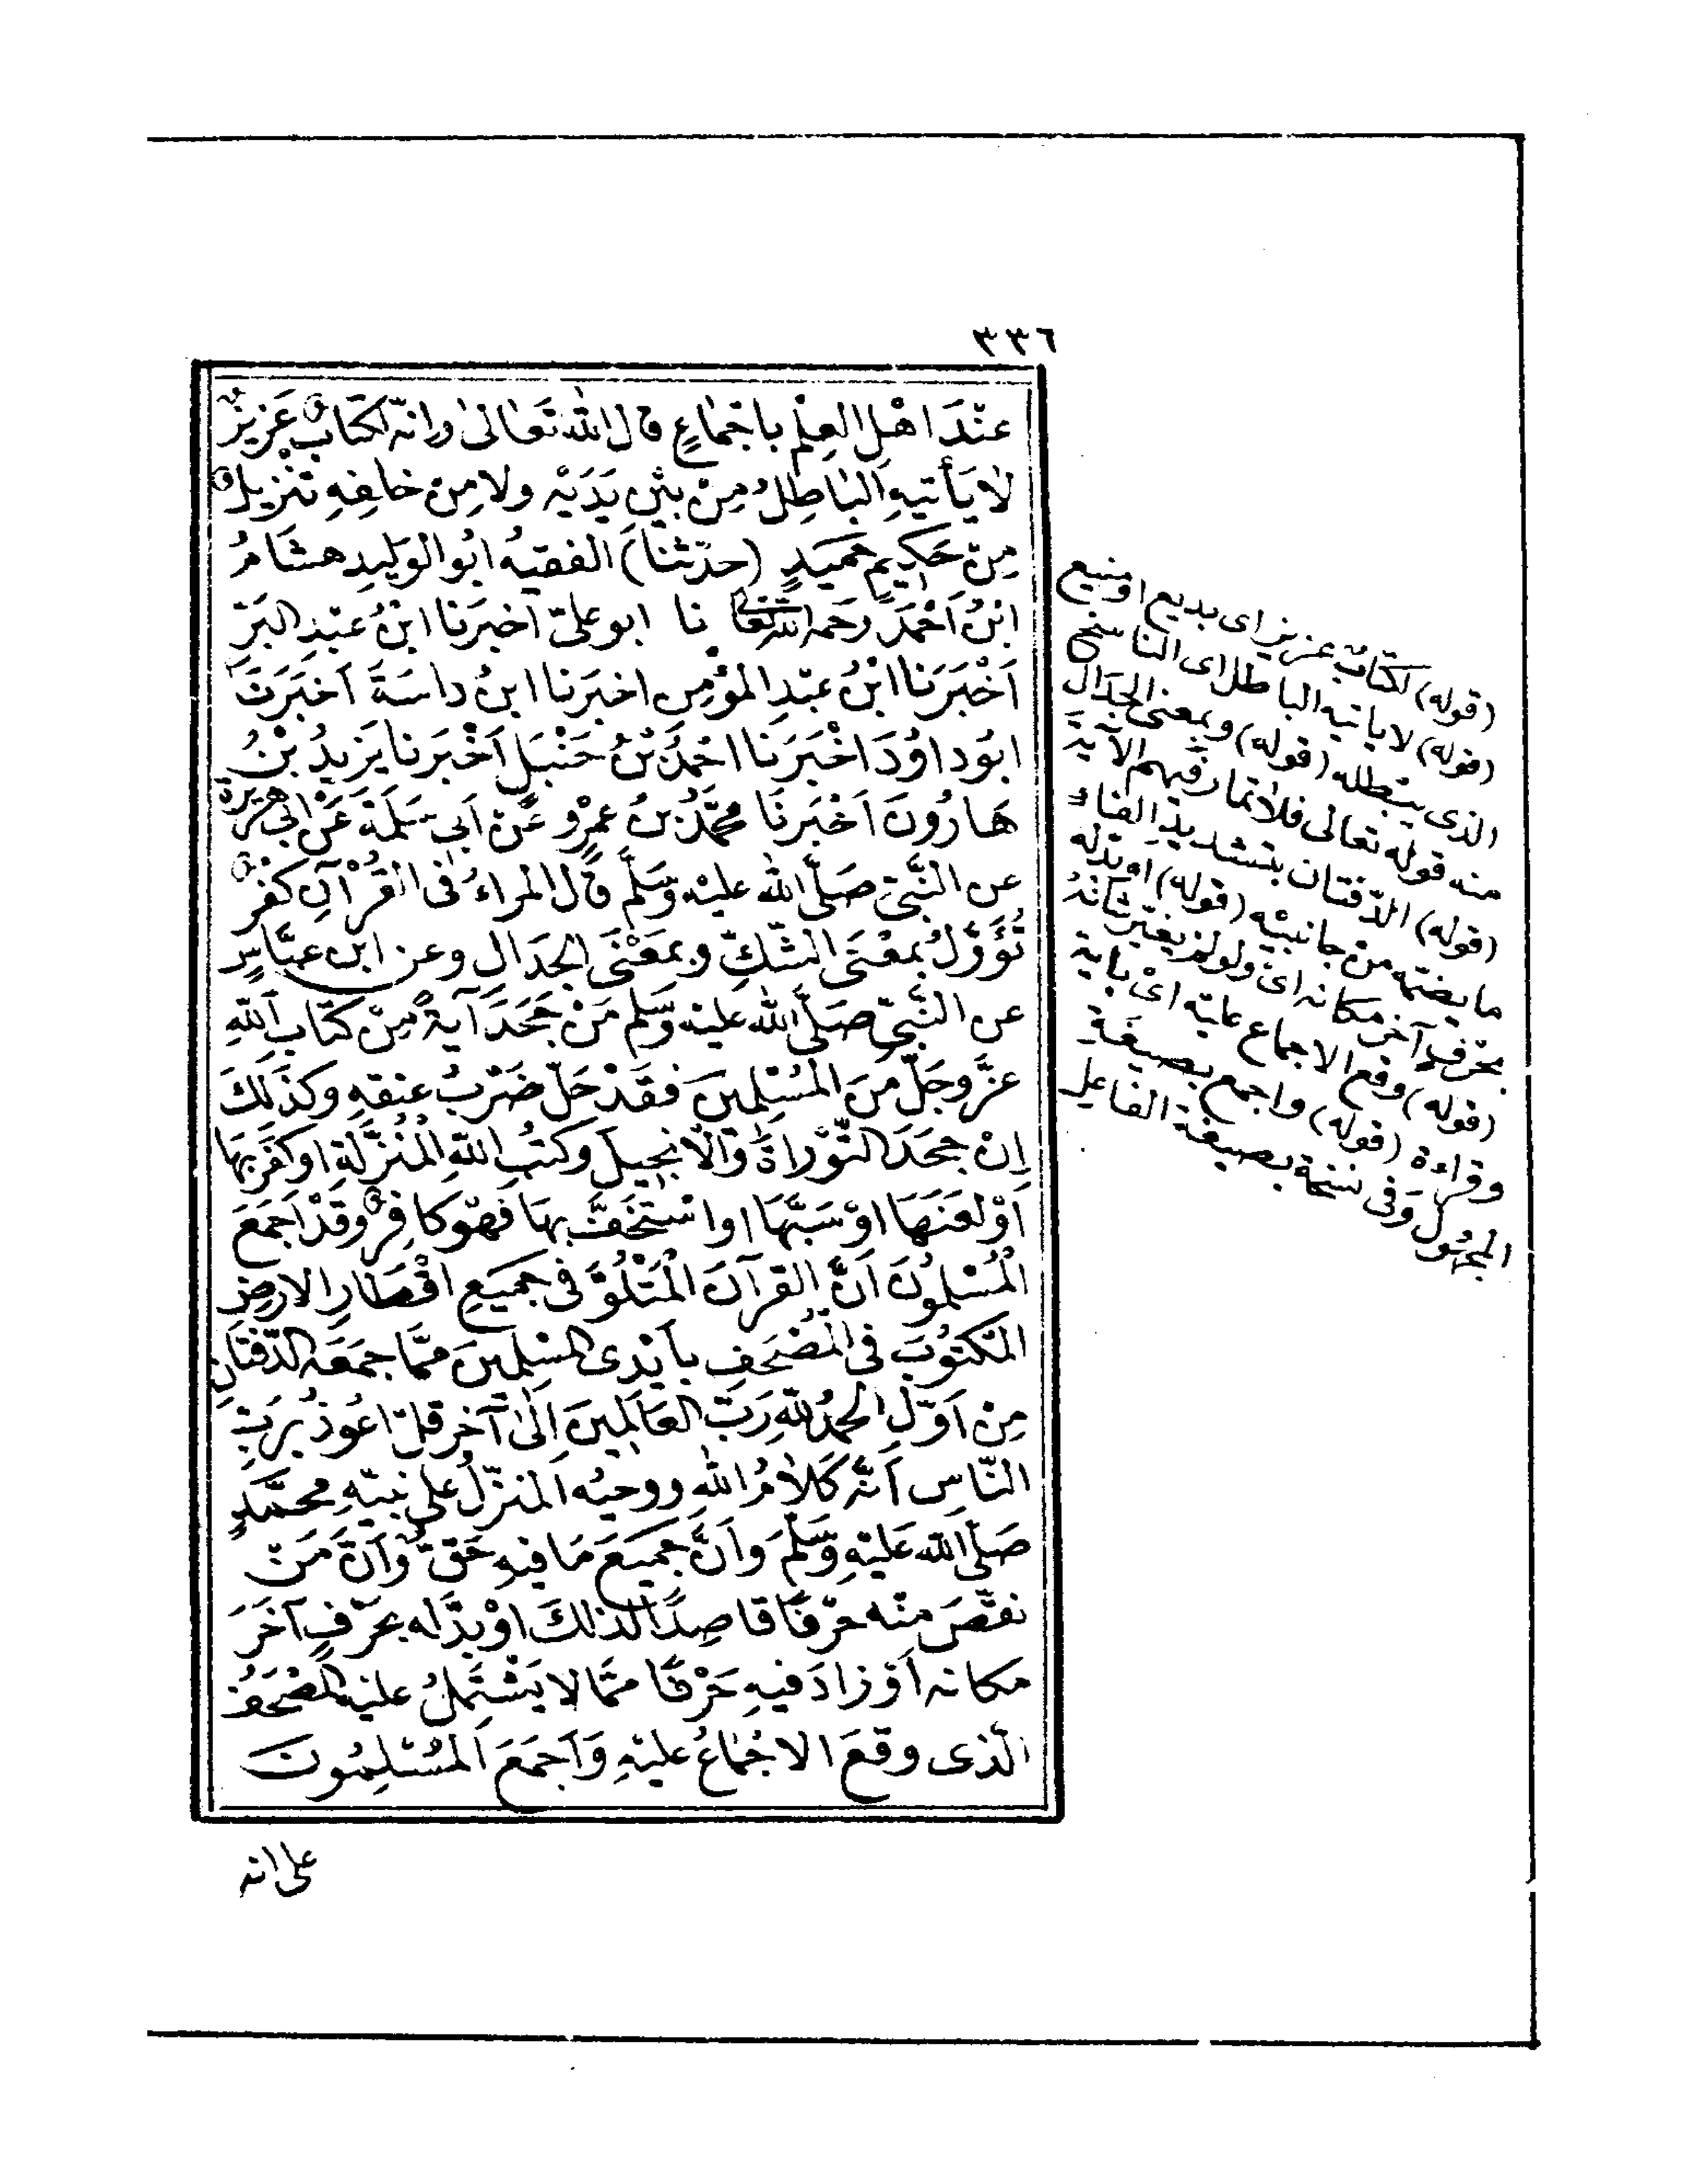 ٣٣٦
عِنْدَ اَهْلِ الْعِلْمِ بِاِجْمَاعٍ قَالَ اللهُ تَعَالىٰ وَاِنَّهُ لَكِتَابٌ عَزِيزٌ
لَا يَأْتِيهِ الْبَاطِلُ مِنْ بَيْنِ يَدَيْهِ وَلَا مِنْ خَلْفِهِ تَنْزِيلٌ
مِنْ حَكِيمٍ حَمِيدٍ (حَدَّثَنَا) الفَقِيهُ اَبُو الْوَلِيدِ هِشَامُ
ابْنُ اَحْمَدَ رَحِمَهُ اللهُ تَعَالى نا ابو عليّ اخبَرَنا ابْنُ عَبْدِ الْبَرِّ
اَخْبَرَنَا ابْنُ عَبْدِ الْمُؤْمِنِ اخبَرَنا ابنُ داسَةَ اَخبَرَنَا
ابُو دَاوُدَ اَخْبَرَنَا احْمَدُ بْنُ حَنْبَلٍ اَخْبَرَنا يَزِيدُ بْنُ
هَارُونَ اَخْبَرَنَا مُحَمَّدُ بْنُ عَمْرٍو عَنْ اَبي سَلَمَةَ عَنْ اَبِي هُرَيْرَةَ
عن النَّبِيِّ صَلَّى اللهُ عليْهِ وَسَلَّمَ قَالَ المِرَاءُ فِي القُرْآنِ كُفْرٌ
تُؤُوِّلَ بِمَعْنَى الشَّكِّ وَبِمَعْنَى الجِدَالِ وعن ابن عبَّاسٍ
عن النَّبِيِّ صَلَّى اللهُ عليْهِ وَسَلَّمَ مَنْ جَحَدَ آيَةً مِنْ كِتَابِ اللهِ
عَزَّ وَجَلَّ مِنَ الْمُسْلِمِينَ فَقَدْ حَلَّ ضَرْبُ عُنُقِهِ وَكَذٰلِكَ
اِنْ جَحَدَ التَّوْرَاةَ وَالْاِنْجِيلَ وَكُتُبَ اللهِ الْمُنَزَّلَةَ اَوْ كَفَرَ بِهَا
اَوْ لَعَنَهَا اَوْ سَبَّهَا اوِ اسْتَخَفَّ بِهَا فَهُوَ كَافِرٌ وَقَدْ اَجْمَعَ
الْمُسْلِمُونَ اَنَّ القُرآنَ الْمَتْلُوَّ فى جَمِيعِ اَقْطَارِ الاَرْضِ
الْمَكْتُوبَ فِى الْمُصْحَفِ بِاَيْدِى الْمُسْلِمِينَ مِمَّا جَمَعَهُ الدَّفَّتَانِ
مِنْ اَوَّلِ الْحَمْدُ لِلّٰهِ رَبِّ الْعَالَمِينَ اِلٰى آخِرِ قُلْ اَعُوذُ بِرَبِّ
النَّاسِ اَنَّهُ كَلَامُ اللهِ وَوَحْيُهُ الْمُنَزَّلُ عَلى نَبِيِّهِ مُحَمَّدٍ
صَلَّى اللهُ عَلَيْهِ وَسَلَّمَ وَاَنَّ جَمِيعَ مَا فِيهِ حَقٌّ وَاَنَّ مَنْ
نَقَصَ مِنْهُ حَرْفًا قَاصِدًا لِذٰلِكَ اَوْ بَدَّلَهُ بِحَرْفٍ آخَرَ
مَكَانَهُ اَوْ زَادَ فِيهِ حَرْفًا مِمَّا لا يَشْتَمِلُ عَلَيْهِ الْمُصْحَفُ
الَّذِى وَقَعَ الاِجْمَاعُ عَلَيْهِ وَاَجْمَعَ الْمُسْلِمُونَ
على انه
(قوله) لكتابٌ عزيز اى بديع او منيع
(قوله) لا ياتيه الباطل اى الناسخ
الذى يبطله (قوله) وبمعنى الجدال
منه قوله تعالى فلا تمار فيهم الآية
(قوله) الدّفتان بتشديد الفاء
ما يضمه من جانبيْه (قوله) او بدله
بحرف آخر مكانه اى ولو لم يغيّر شانهُ
(قوله) وقع الاجماع عليه اىْ
وقراءة (قوله) واجمع بصيغة
المجهول وفى نسخة بصيغة الفاعل